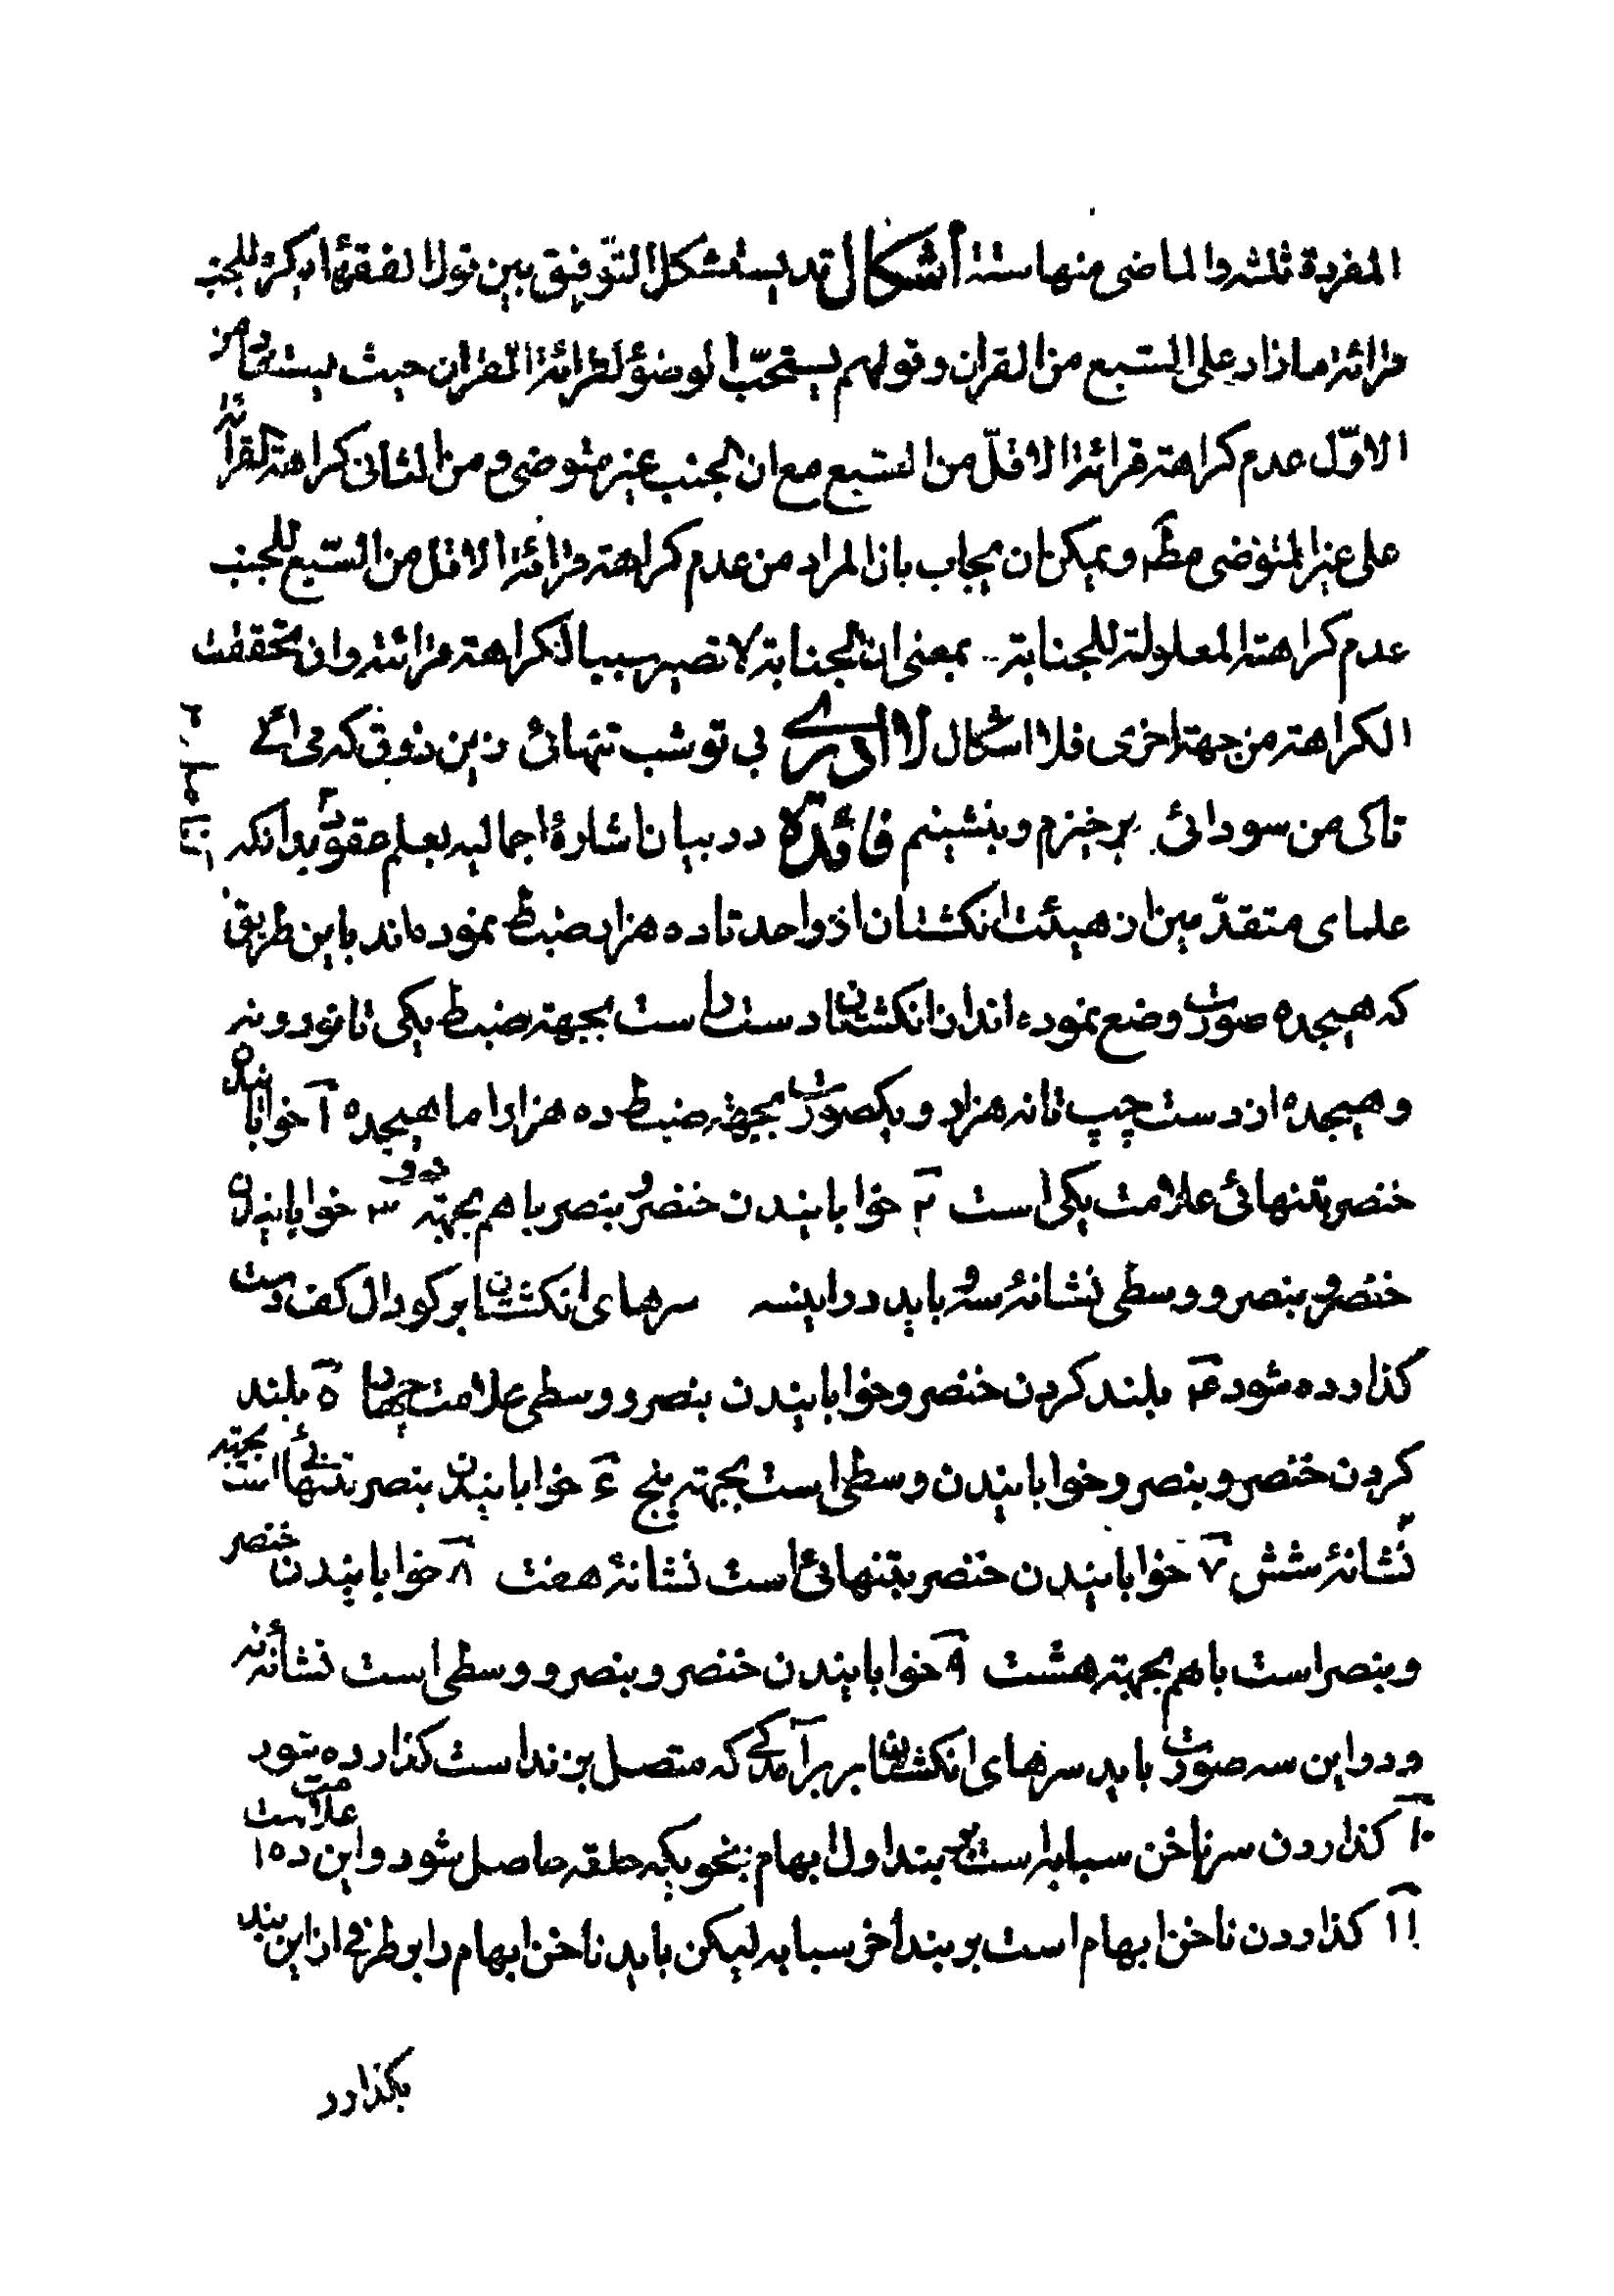 المفردة ثلثه والماضى منها ستة اشكال قد يستشكل التّوفيق بين قول الفقهاء يكره للجنب
قرائة ما زاد على السّبع من القران وقولهم يستحبّ الوضوُ لقرائة القران حيث يستفاد من
الاوّل عدم كراهة قرائة الاقلّ من السّبع مع ان الجنب غير متوضى و من الثانى كراهة القرائة
على غير المتوضى مطم ويمكن ان يجاب بان المراد من عدم كراهة قرائة الاقل من السّبع للجنب
عدم كراهته المعلولة للجنابة بمعنى ان الجنابة لا تصير سببا لكراهة قرائته وان تحققت
الكراهة من جهة اخرى فلا اشكال لا ادرى بى تو شب تنهائى زين ذوق كه مى ائى
تاكى من سودائى برخيزم وبنشينم فائده در بيان اشارهٔ اجماليه بعلم عقود بدانكه
علماى متقدّمين از هيئت انكشتان از واحد تا ده هزار ضبط نموده اند باين طريق
كه هيجده صورت وضع نموده اند از انكشتان دست راست بجهة ضبط يكى تا نود ونه
وهيجده از دست چپ تا نه هزار ويكصورت بجهة ضبط ده هزار اما هيجده ١ خوابانيدن
خنصر بتنهائى علامت يكى است ٢ خوابانيدن خنصر و بنصر با هم بجهة دو ٣ خوابانيدن
خنصر و بنصر و وسطى نشانهٔ سه و بايد در اينسه سرهاى انكشتان بر كودال كف دست
كذارده شود ۴ بلند كردن خنصر وخوابانيدن بنصر و وسطى علامت چهار ۵ بلند
كردن خنصر وبنصر وخوابانيدن وسطى است بجهة پنج ۶ خوابانيدن بنصر تنهائى است بجهة
نشانهٔ شش ٧ خوابانيدن خنصر بتنهائى است نشانهٔ هفت ٨ خوابانيدن خنصر
وبنصر است با هم بجهة هشت ٩ خوابانيدن خنصر وبنصر و وسطى است نشانهٔ نه
ودر اين سه صورت بايد سرهاى انكشتان بر برآمدگى كه متصل بزند است كذارده شود
١٠ كذاردن سر ناخن سبابه است بر بند اول ابهام بنحويكه حلقه حاصل شود واين علامت ده است
١١ كذاردن ناخن ابهام است بر بند اخر سبابه ليكن بايد ناخن ابهام را بر طرفى از اين بند
بكذارد